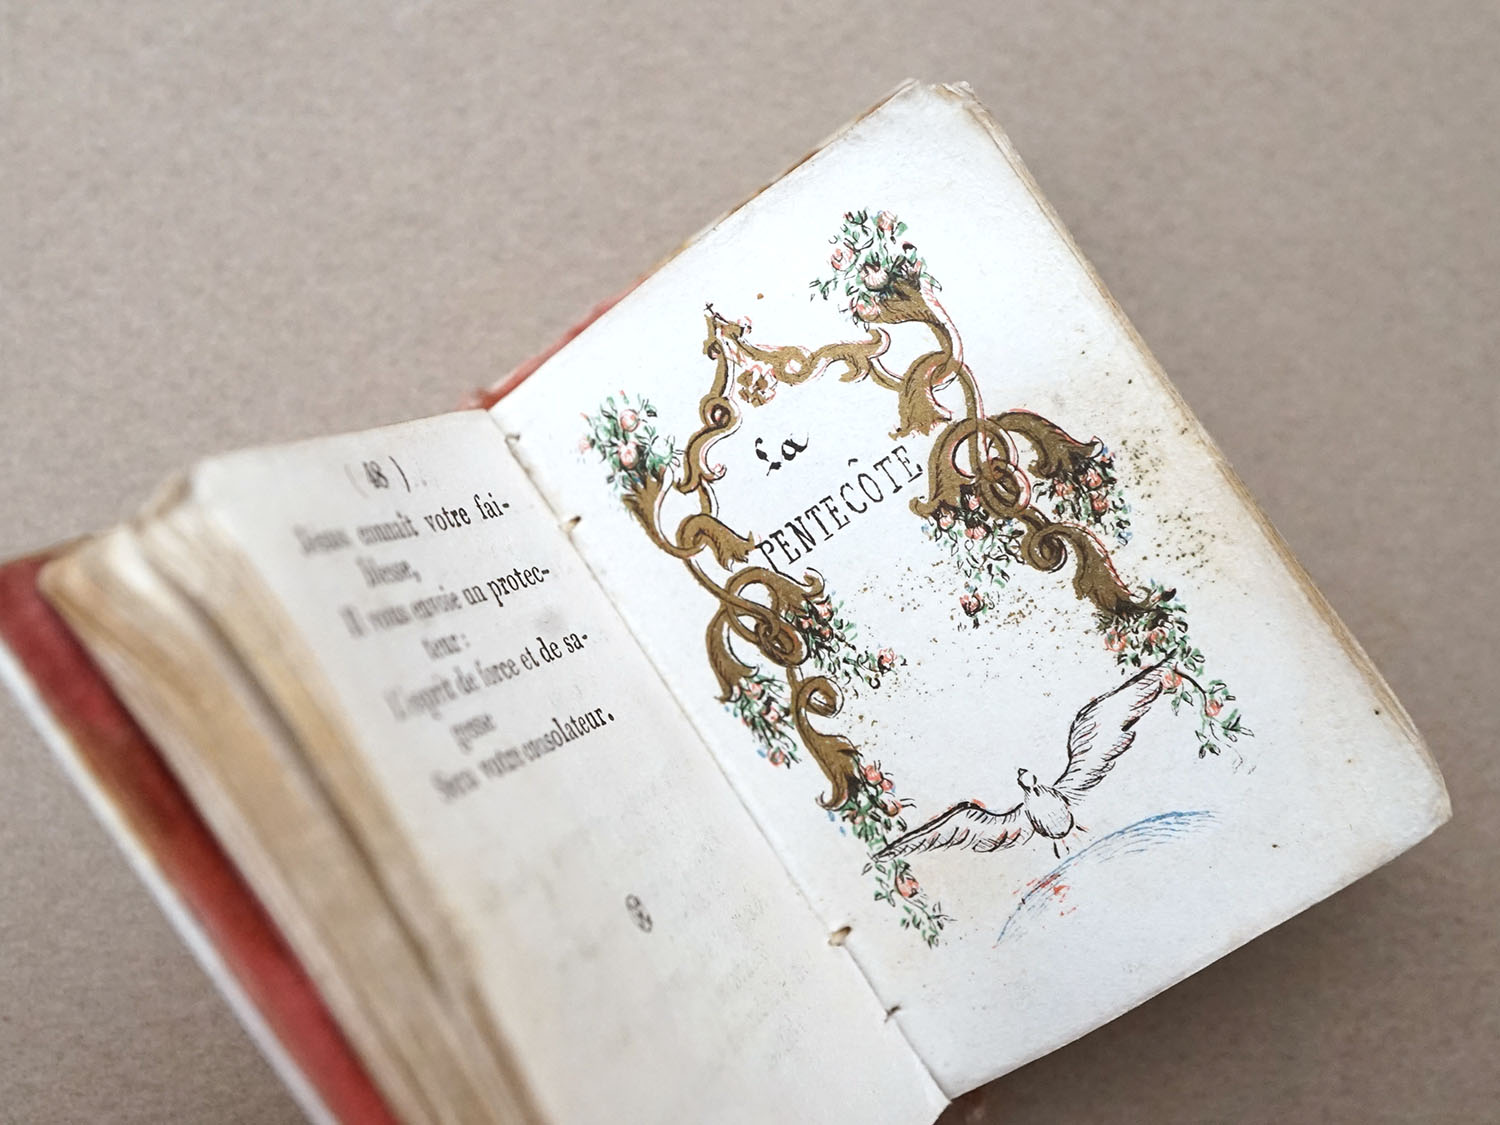 ( 48 )
Jésus connaît votre fai-
blesse,
Il vous envoie un protec-
teur :
L'esprit de force et de sa-
gesse
Sera votre consolateur.
La
PENTECÔTE